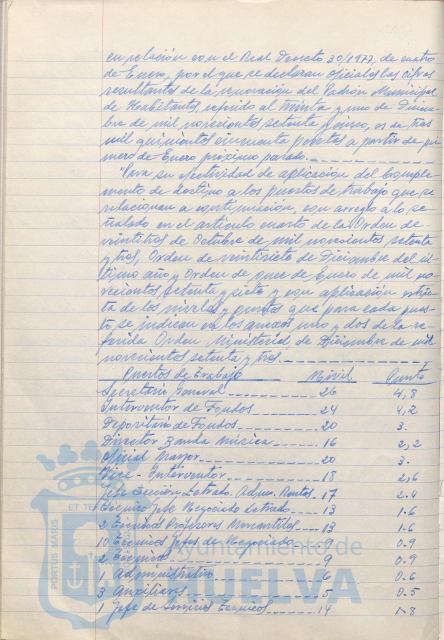 en relación con el Real Decreto 30/1977, de cuatro
de Enero, por el que se declaran oficiales las cifras
resultantes de la renovación del Padrón Municipal
de Habitantes, referido al treinta y uno de Diciem
bre de mil novecientos setenta y cinco, es de tres
mil quinientos cincuenta puntos a partir de pri
mero de Enero próximo pasado.
"Para su efectividad de aplicación del Comple
mento de destino a los puestos de trabajo que se
relacionan a continuación, con arreglo a lo se
ñalado en el artículo cuarto de la Orden de
veintitres de Octubre de mil novecientos setenta
y tres, Orden de veintisiete de Diciembre del úl
timo año y Orden de once de Enero de mil no
vecientos setenta y siete y con aplicación estric
ta de los niveles y puntos que para cada pues
to se indican en los anexos uno y dos de la re
ferida Orden Ministerial de Diciembre de mil
novecientos setenta y tres.
Puestos de Trabajo Nivel Punto
Secretario General 26 4,8
Interventor de Fondos 24 4,2
Depositario de Fondos 20 3.
Director Banda Música 16 2,2
Oficial Mayor 20 3.
Vice-Interventor 18 2,6
Jefe Sección Letrado. Admon. Rentas. 17 2.4
Técnico Jefe Negociado Letrado 13 1.6
2 Técnicos Profesores Mercantiles 13 1.6
10 Técnicos Jefes de Negociado 9 0.9
2 Técnicos 9 0.9
1 Administrativo 6 0.6
3 Auxiliares 5 0.5
1 Jefe de Servicios Técnicos 14 1-8
PORTUS MARIS ET TE
Ayuntamiento de
HUELVA